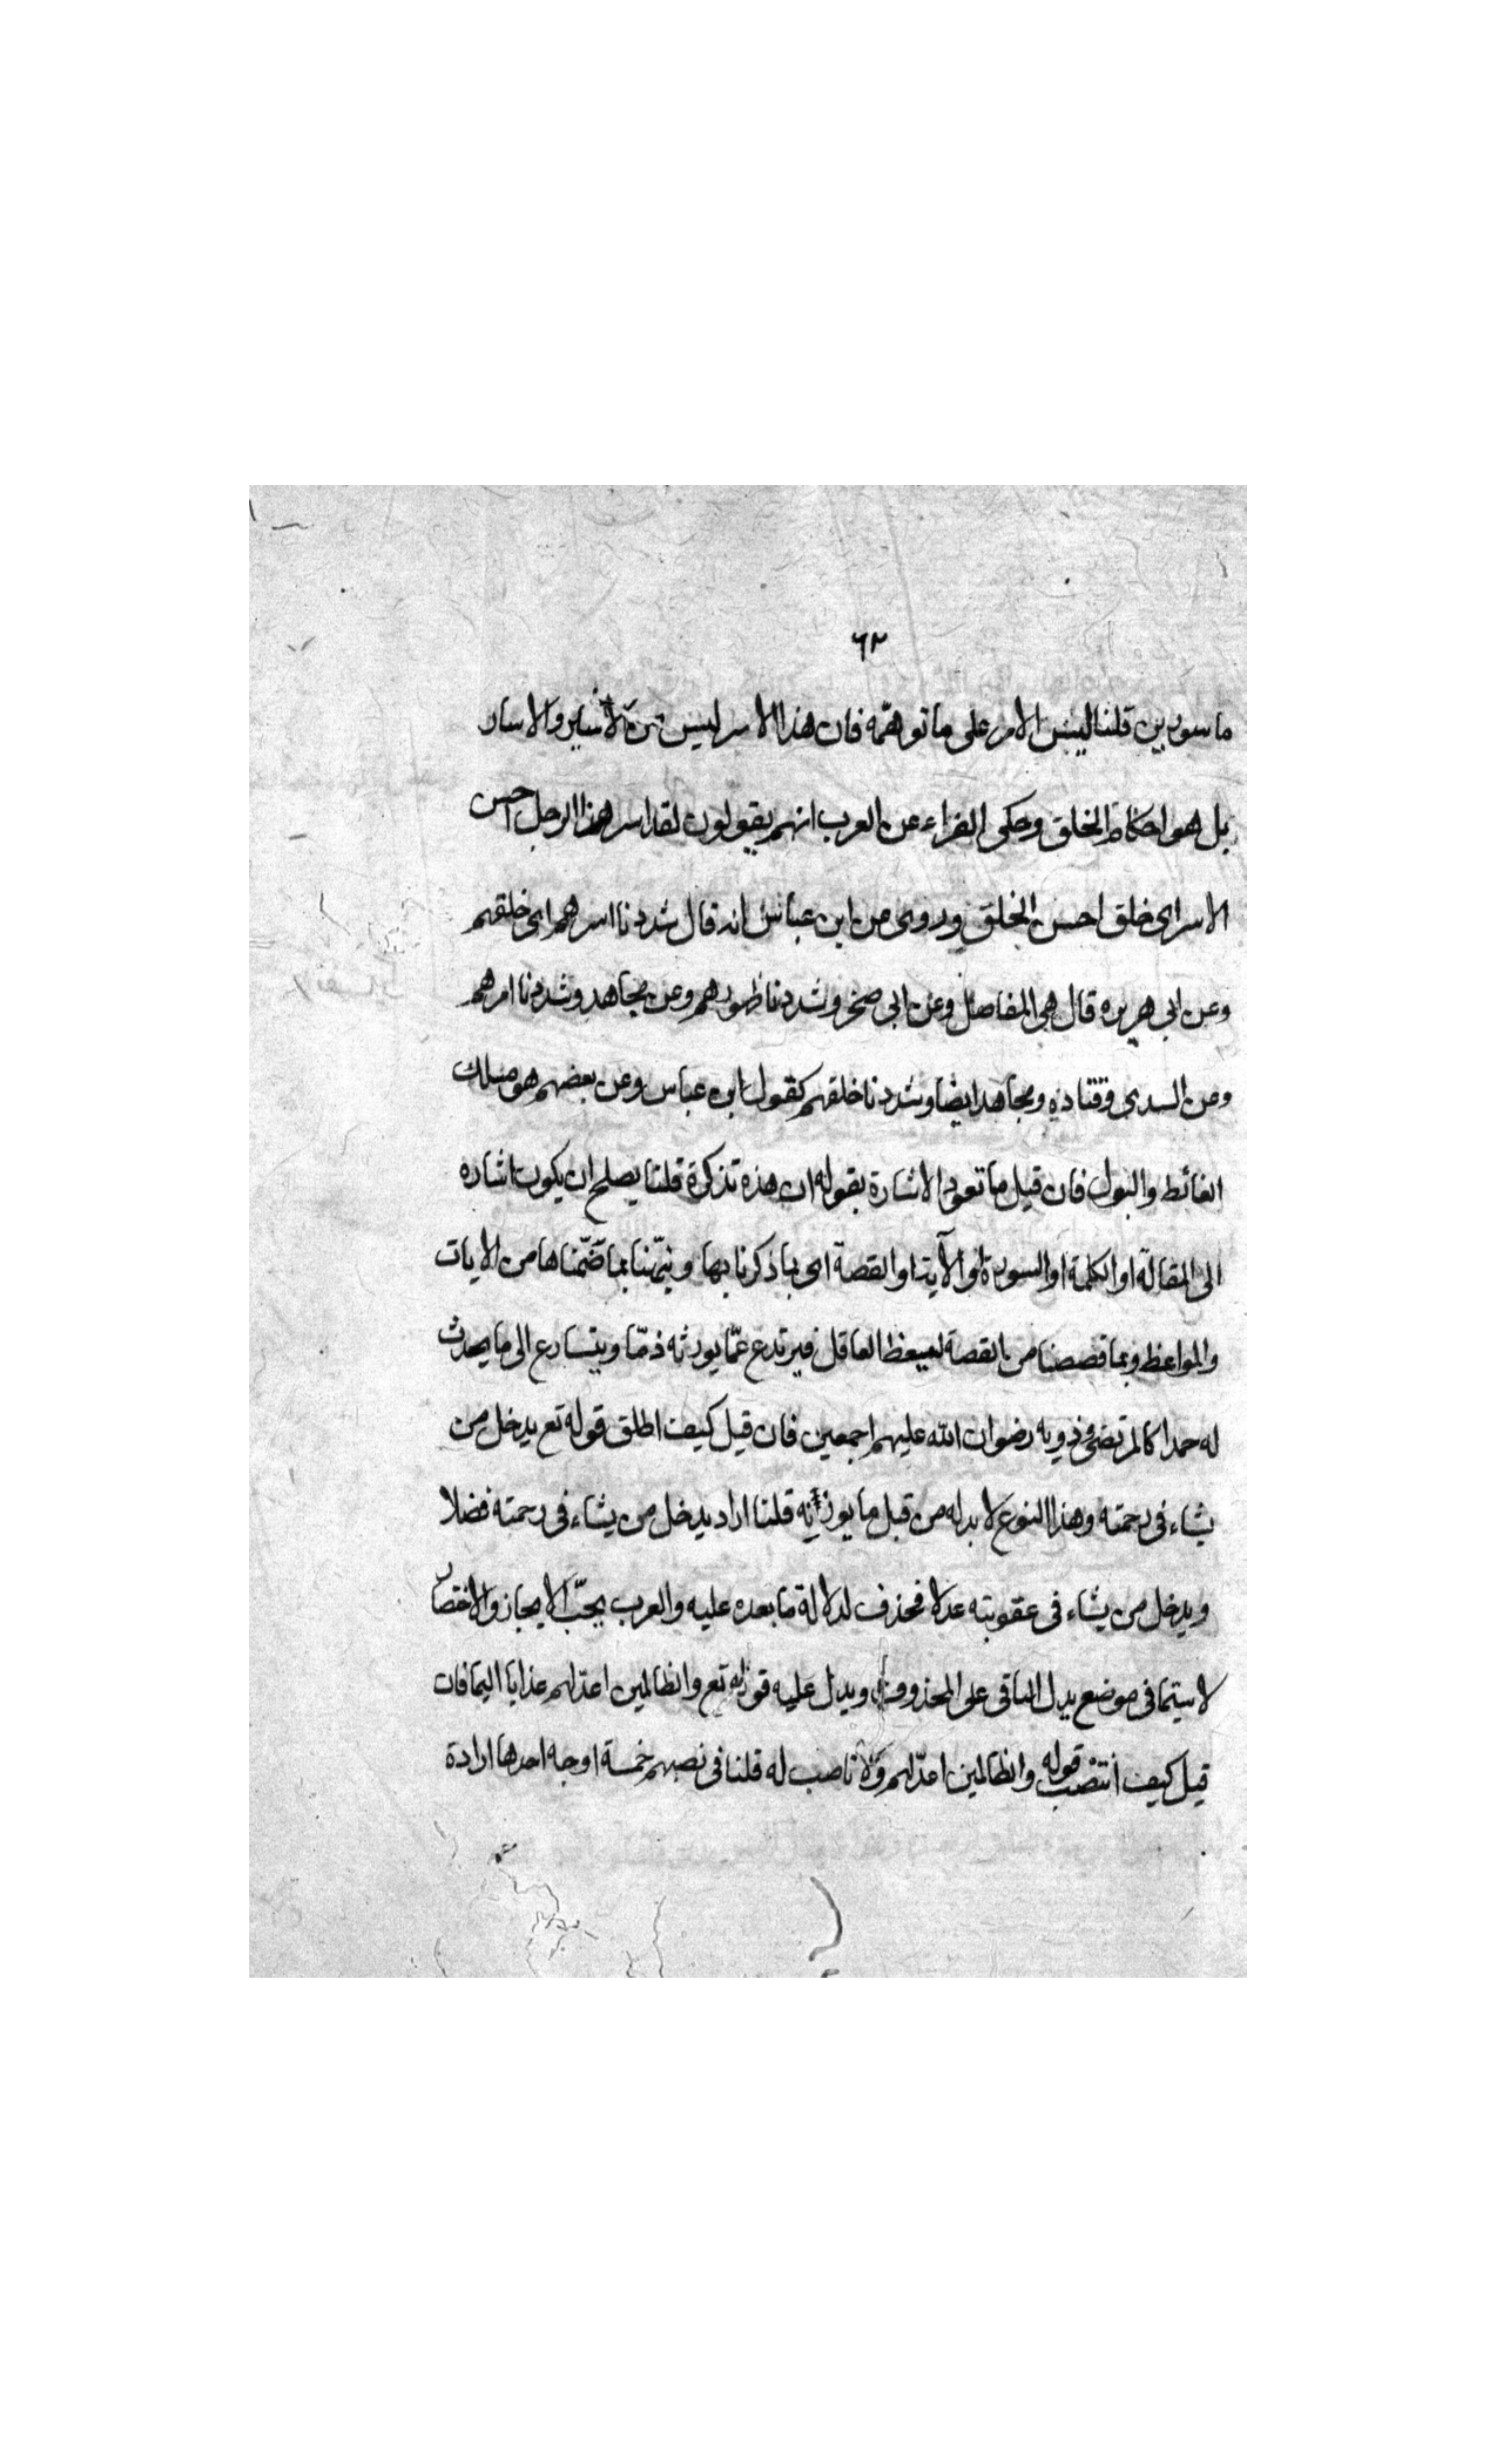 ٦٢
ماسورين قلنا ليس الامر على ما توهمّه فان هذا الاسر ليس من الاسير والاسار
بل هو احكام الخلق وحكى الفراء عن العرب انهم يقولون لقد اسر هذا الرجل احسن
الاسر اى خلق احسن الخلق وروى عن ابن عباس انه قال شددنا اسرهم اى خلقهم
وعن ابى هريره قال هى المفاصل وعن ابى صخر وشددنا ظهورهم وعن مجاهد وشددنا امرهم
وعن السدى وقتاده ومجاهد ايضا وشددنا خلقهم كقول ابن عباس وعن بعضهم هو مسلك
الغائط والبول فان قيل ما تعود الاشارة بقوله ان هذه تذكرة قلنا يصلح ان يكون اشاره
الى المقالة او الكلمة او السورة او الآية او القصة اى بما ذكرنا بها ونبّهنا بما ضمّناها من الايات
والمواعظ وبما قصصنا من القصة ليتعظ العاقل فيرتدع عمّا يورثه ذمّا ويتسارع الى ما يحدث
له حمدا كالمرتضى وذويه رضوان الله عليهم اجمعين فان قيل كيف اطلق قوله تع يدخل من
يشاء فى رحمته وهذا النوع لا بد له من قبل ما قلنا اراد يدخل من يشاء فى رحمته فضلا
ويدخل من يشاء فى عقوبته عدلا فحذف لدلالة ما بعده عليه والعرب يحبّ الايجاز والاختصار
لا سيّما فى موضع يدل الباقى على المحذوف ويدل عليه قوله تع والظالمين اعد لهم عذابا اليما فان
قيل كيف انتصب قوله والظالمين اعدّ لهم ولا ناصب له قلنا فى نصبهم خمسة اوجه احدها ارادة